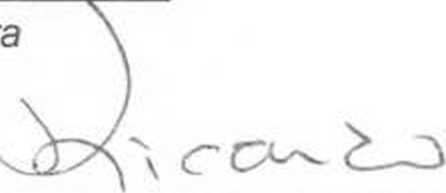 ra
Ricardo